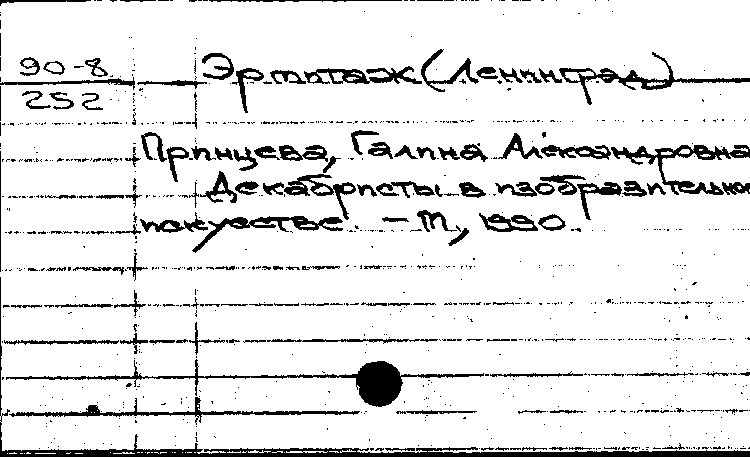 90-8
252
Эрмитаж (Ленинград)
Принцева, Галина Александровна
Декабристы в изобразительном
искусстве. – М, 1990.